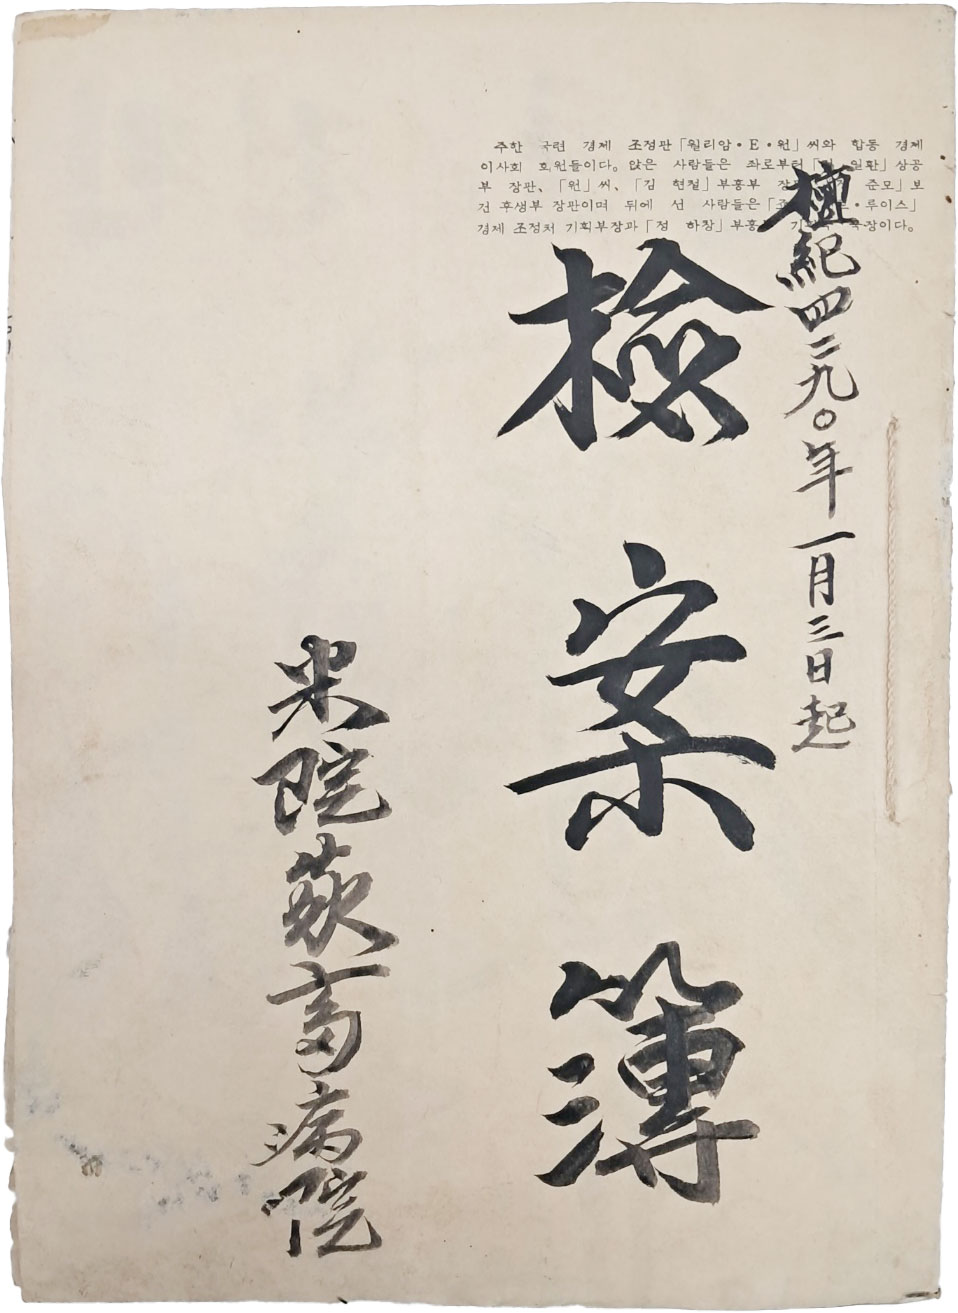 주한 국련 경제 조정관「윌리암·E·원」씨와 합동 경제
이사회 회원들이다。앉은 사람들은 좌로부터 일환」상공
부 장관、「원」씨、「김 현철」부흥부 준모」보
건 후생부 장관이며 뒤에 선 사람들은 루이스」
경제 조정처 기획부장과「정 하창」국장이다。
檀紀四二九〇年一月三日起
檢案簿
米院家畜病院